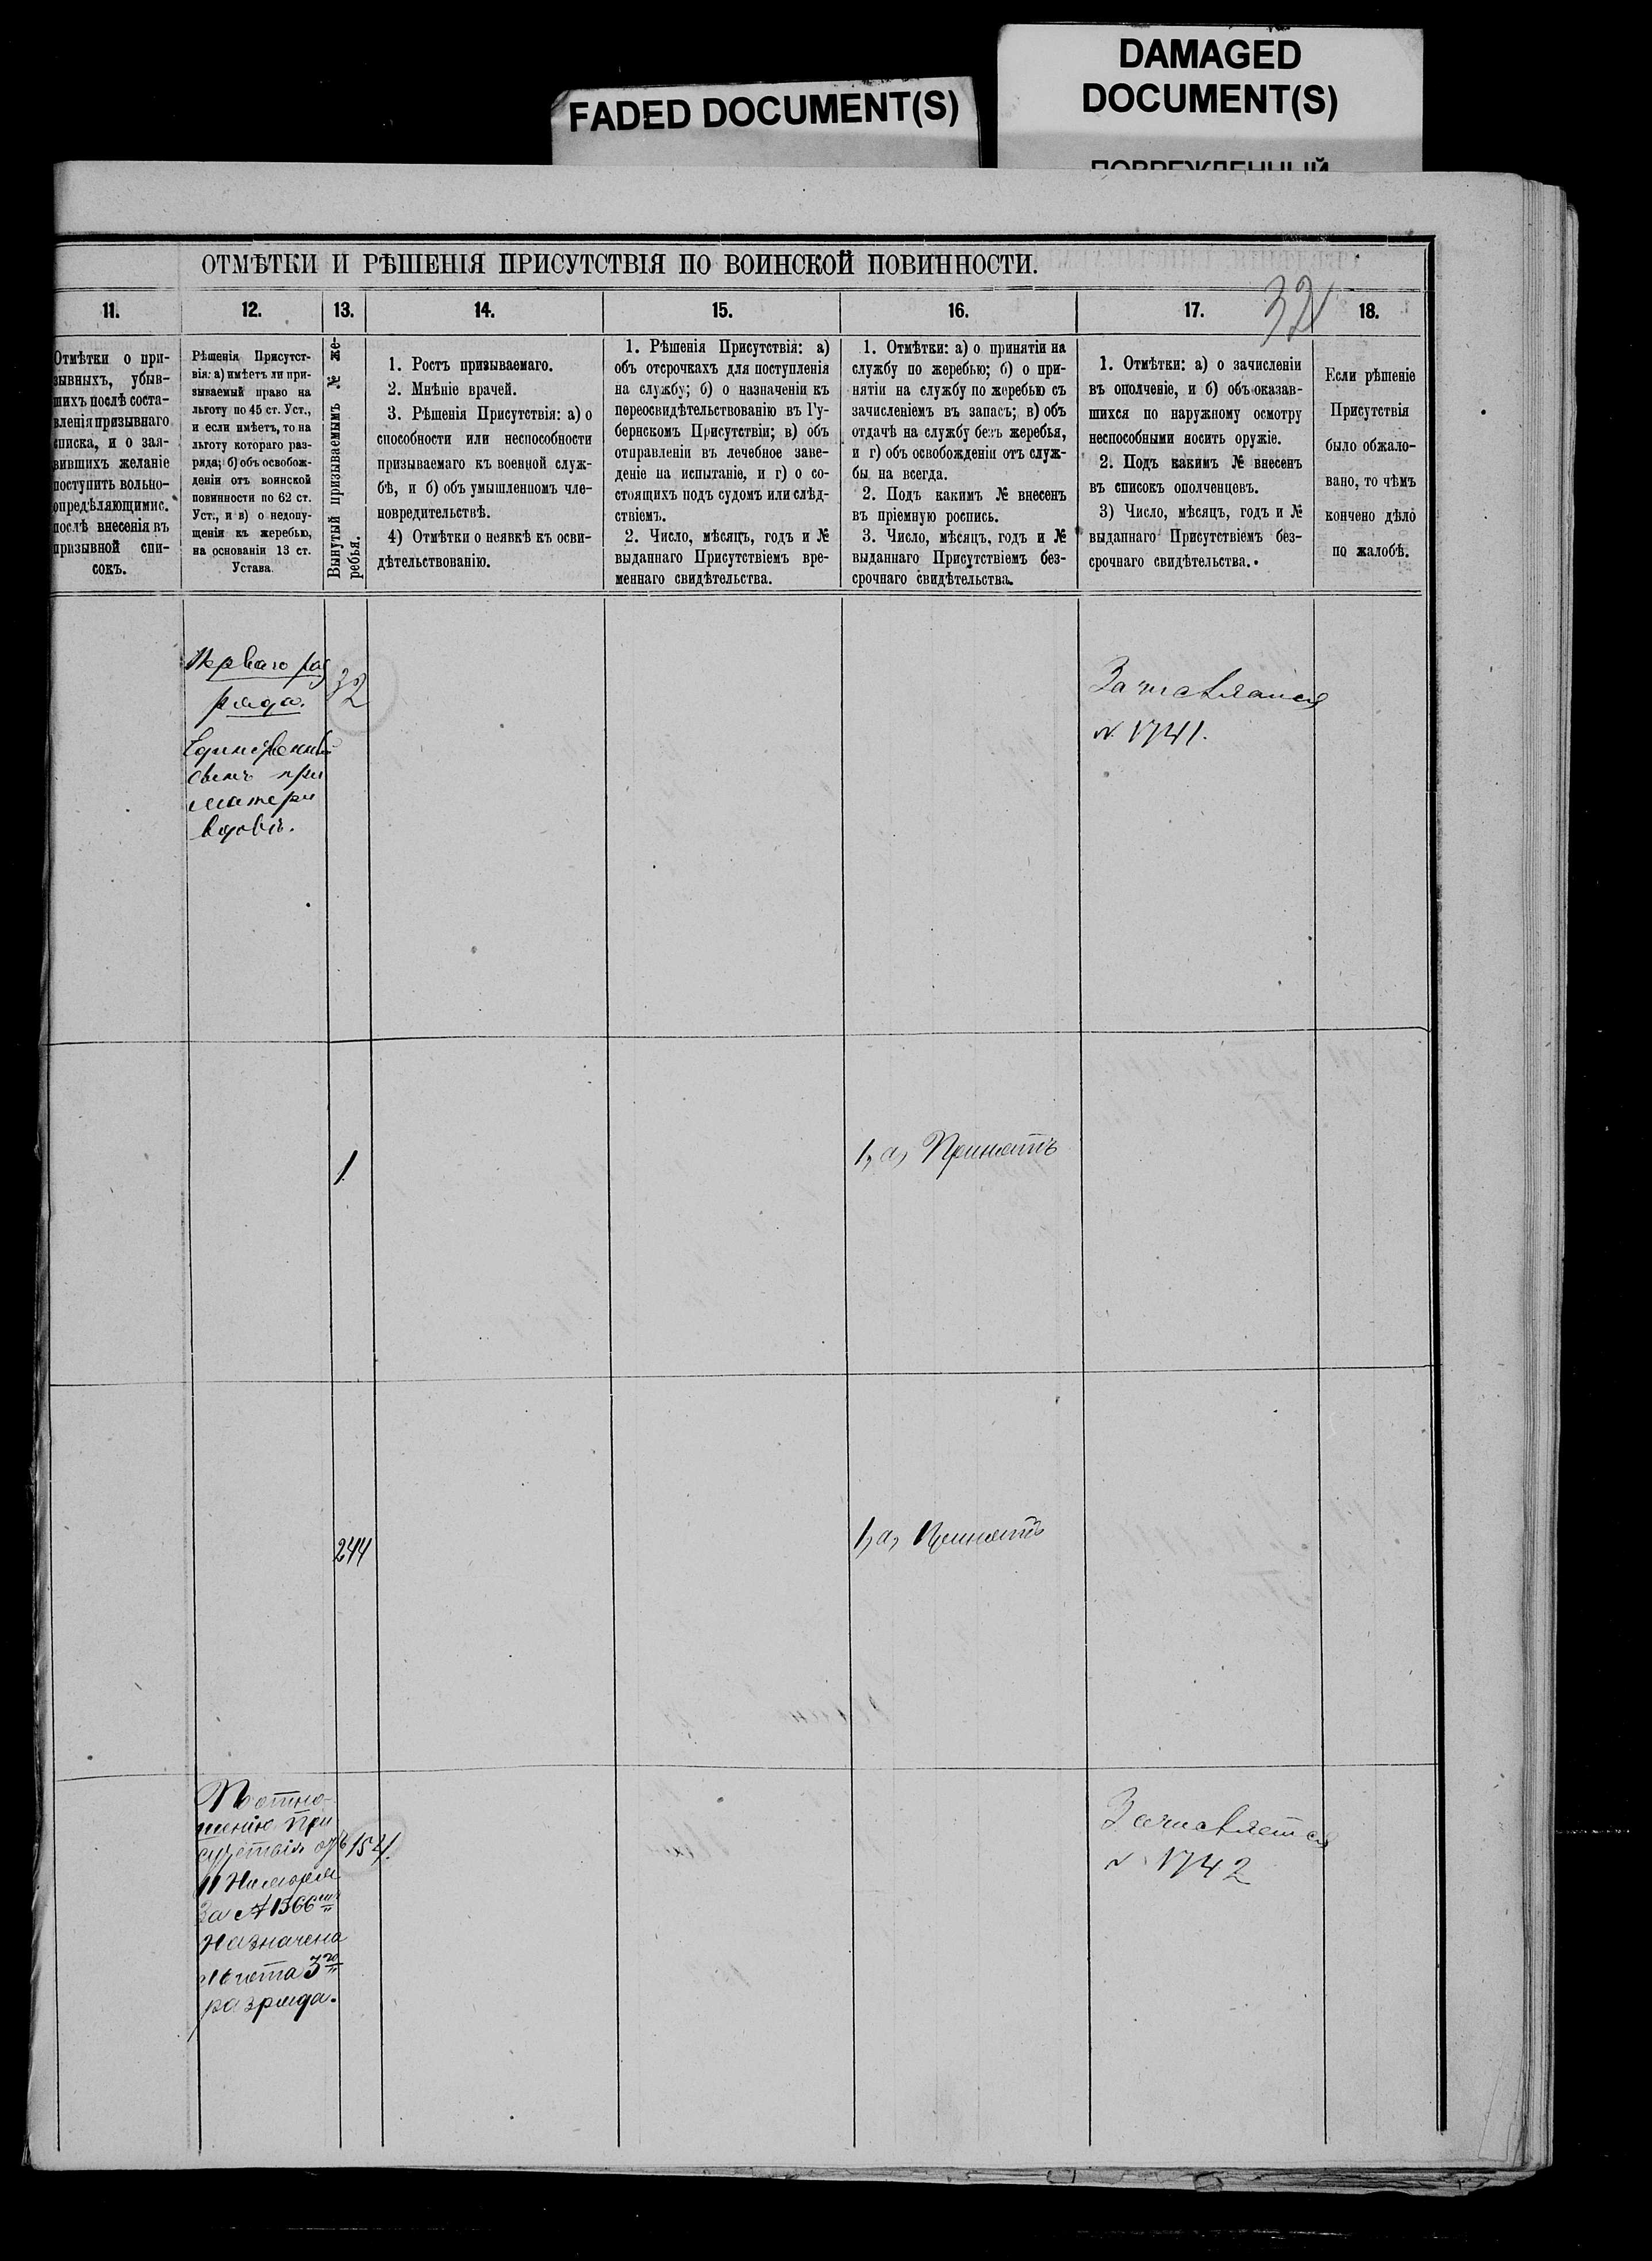 FADED DOCUMENT(S)
DAMAGED
DOCUMENT(S)
ПОВРЕЖДЕННЫЙ
ОТМѢТКИ И РѢШЕНІЯ ПРИСУТСТВІЯ ПО ВОИНСКОЙ ПОВИННОСТИ.
32
11.
12.
13.
14.
15.
16.
17.
18.
Отмѣтки о при-
зывныхъ, убыв-
шихъ послѣ соста-
вленія призывнаго
списка, и о зая-
вившихъ желаніе
поступить вольно-
опредѣляющимис.
послѣ внесенія въ
призывной спи-
сокъ.
Рѣшенія Присутст-
вія: а) имѣетъ ли при-
зываемый право на
льготу по 45 ст. Уст.,
и если имѣетъ, то на
льготу котораго раз-
ряда; б) объ освобож-
деніи отъ воинской
повинности по 62 ст.
Уст., и в) о недопу-
щеніи къ жеребью,
на основаніи 13 ст.
Устава.
Вынутый призываемымъ № же-
ребья.
1. Ростъ призываемаго.
2. Мнѣніе врачей.
3. Рѣшенія Присутствія: а) о
способности или неспособности
призываемаго къ военной служ-
бѣ, и б) объ умышленномъ чле-
новредительствѣ.
4) Отмѣтки о неявкѣ къ осви-
дѣтельствованію.
1. Рѣшенія Присутствія: а)
объ отсрочкахъ для поступленія
на службу; б) о назначеніи къ
переосвидѣтельствованію въ Гу-
бернскомъ Присутствіи; в) объ
отправленіи въ лечебное заве-
деніе на испытаніе, и г) о со-
стоящихъ подъ судомъ или слѣд-
ствіемъ.
2. Число, мѣсяцъ, годъ и №
выданнаго Присутствіемъ вре-
меннаго свидѣтельства.
1. Отмѣтки: а) о принятіи на
службу по жеребью; б) о при-
нятіи на службу по жеребью съ
зачисленіемъ въ запасъ; в) объ
отдачѣ на службу безъ жеребья,
и г) объ освобожденіи отъ служ-
бы на всегда.
2. Подъ какимъ № внесенъ
въ пріемную роспись.
3. Число, мѣсяцъ, годъ и №
выданнаго Присутствіемъ без-
срочнаго свидѣтельства.
1. Отмѣтки: а) о зачисленіи
въ ополченіе, и б) объ оказав-
шихся по наружному осмотру
неспособными носить оружіе.
2. Подъ какимъ № внесенъ
въ списокъ ополченцевъ.
3) Число, мѣсяцъ, годъ и №
выданнаго Присутствіемъ без-
срочнаго свидѣтельства.
Если рѣшеніе
Присутствія
было обжало-
вано, то чѣмъ
кончено дѣло
по жалобѣ.
Перваго раз
ряда.
Единственный
сынъ при
матери
вдовѣ.
32
Зачисляется
№ 1741.
1
1, а, Принятъ
244
1, а, Принятъ
По отно-
шенію При
сутствія отъ
11 Ноября
За № 1566
Назначена
льгота 3го
разряда.
154.
Зачисляется
№ 1742